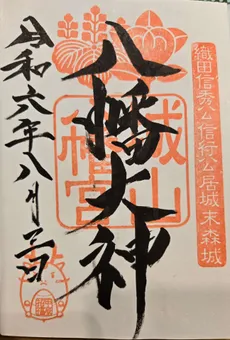 織田信秀公信行公居城末森城
八幡大神
城山
八幡宮
令和六年八月二日